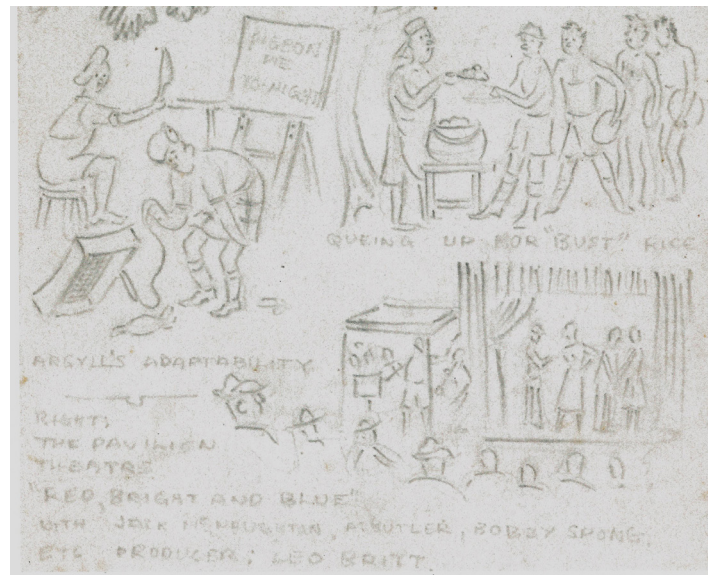 PIGEON
PIE
TO-NIGHT
QUEING UP FOR "BUST" RICE
ARGYLL'S ADAPTABILITY
RIGHT:
THE PAVILION
THEATRE
"RED, BRIGHT AND BLUE"
WITH JACK McNAUGHTON, A. BUTLER, BOBBY SPONG,
ETC PRODUCER; LEO BRITT